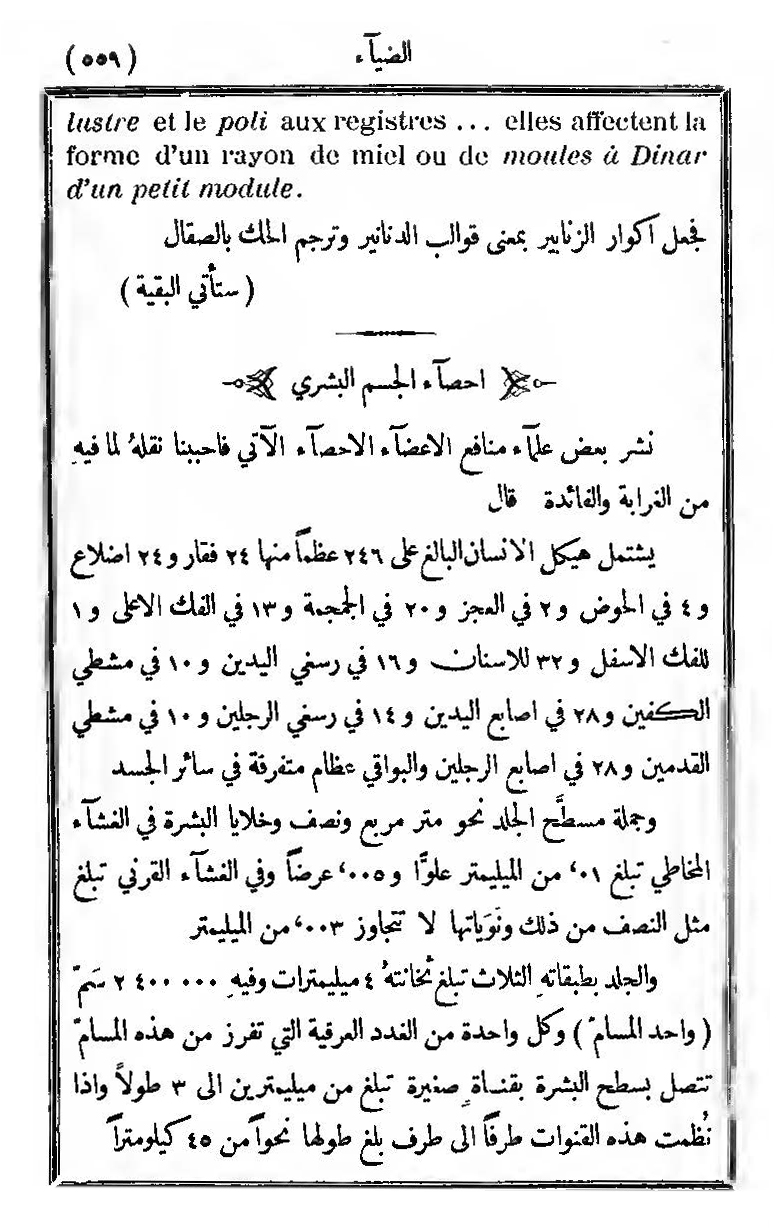 الضيآء (٥٥٩)
lustre et le poli aux registres ... elles affectent la
forme d'un rayon de miel ou de moules à Dinar
d'un petit module.
فجعل اكوار الزنابير بمعنى قوالب الدنانير وترجم الحلك بالصقال
( ستأتي البقية )
احصآء الجسم البشري
نشر بعض علمآء منافع الاعضآء الاحصآء الآتي فاحببنا نقلهُ لما فيهِ
من الغرابة والفائدة قال
يشتمل هيكل الانسان البالغ على ٢٤٦ عظماً منها ٢٤ فقار و٢٤ اضلاع
و٤ في الحوض و٢ في العجز و٢٠ في الجمجمة و١٣ في الفك الاعلى و١
للفك الاسفل و٣٢ للاسنان و١٦ في رسغي اليدين و١٠ في مشطي
الكفين و٢٨ في اصابع اليدين و١٤ في رسغي الرجلين و١٠ في مشطي
القدمين و٢٨ في اصابع الرجلين والبواقي عظام متفرقة في سائر الجسد
وجملة مسطَّح الجلد نحو متر مربع ونصف وخلايا البشرة في الغشآء
المخاطي تبلغ ٠١‘ من المليمتر علوًّا و٠٠٥‘ عرضاً وفي الغشآء القرني تبلغ
مثل النصف من ذلك ونَوَياتها لا تتجاوز ٠٠٣‘ من المليمتر
والجلد بطبقاتهِ الثلاث تبلغ ثخانتهُ ٤ ميليمترات وفيهِ ٢ ٤٠٠ ٠٠٠ سَمّ
( واحد المسامّ ) وكل واحدة من الغدد العرقية التي تفرز من هذه المسامّ
تتصل بسطح البشرة بقناة صغيرة تبلغ من ميليمترين الى ٣ طولاً واذا
نُظمت هذه القنوات طرفاً الى طرف بلغ طولها نحواً من ٤٥ كيلومتراً